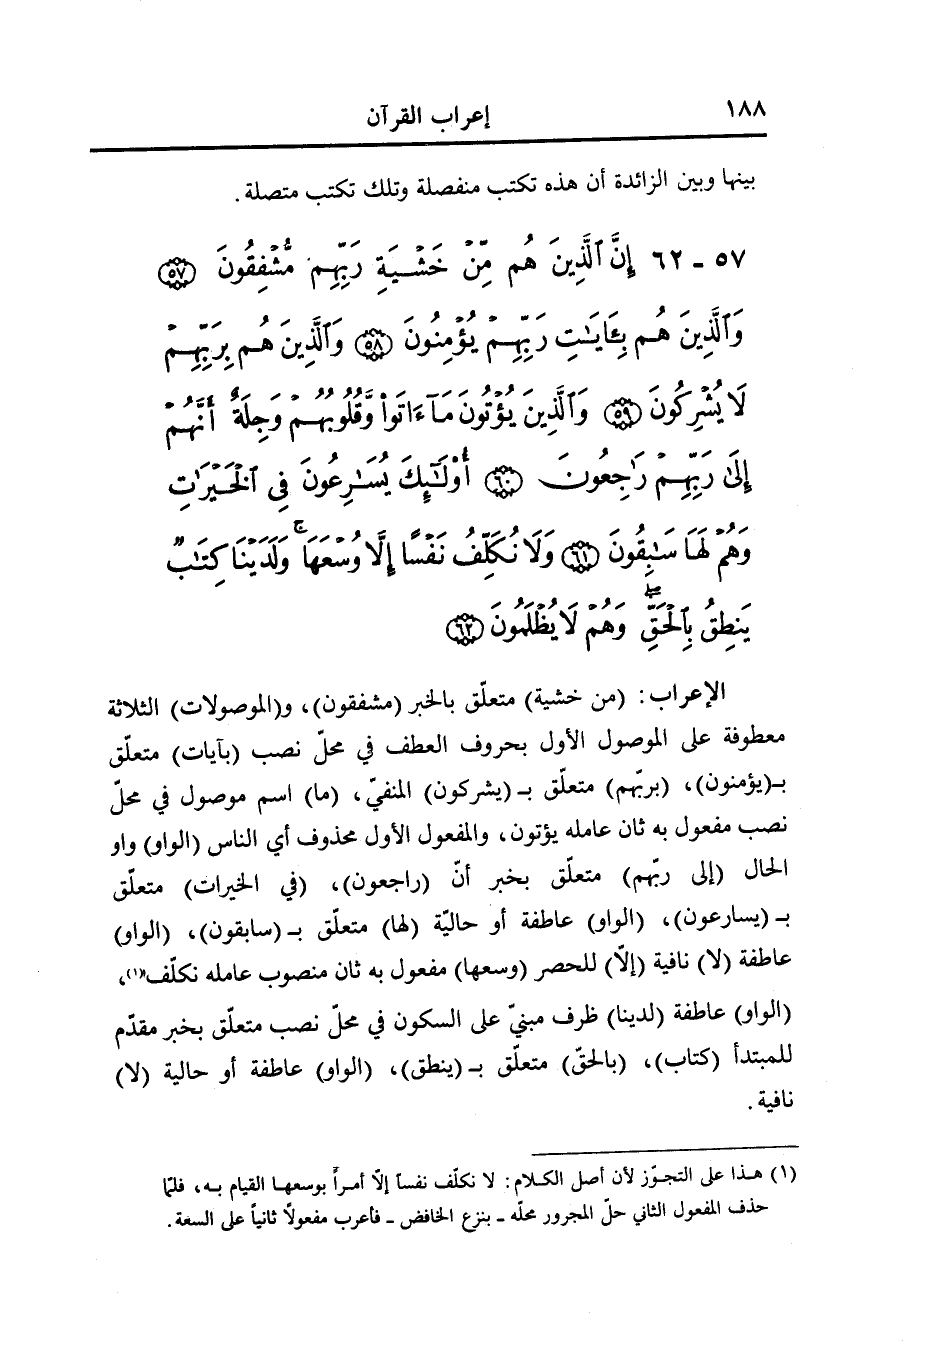 ١٨٨
إعراب القرآن
بينها وبين الزائدة أن هذه تكتب منفصلة وتلك تكتب متصلة .
٥٧ - ٦٢ إِنَّ ٱلَّذِينَ هُم مِّنْ خَشْيَةِ رَبِّهِم مُّشْفِقُونَ ٥٧
وَٱلَّذِينَ هُم بِـَٔايَـٰتِ رَبِّهِمْ يُؤْمِنُونَ ٥٨ وَٱلَّذِينَ هُم بِرَبِّهِمْ
لَا يُشْرِكُونَ ٥٩ وَٱلَّذِينَ يُؤْتُونَ مَآ ءَاتَوا۟ وَّقُلُوبُهُمْ وَجِلَةٌ أَنَّهُمْ
إِلَىٰ رَبِّهِمْ رَٰجِعُونَ ٦٠ أُو۟لَـٰٓئِكَ يُسَـٰرِعُونَ فِى ٱلْخَيْرَٰتِ
وَهُمْ لَهَا سَـٰبِقُونَ ٦١ وَلَا نُكَلِّفُ نَفْسًا إِلَّا وُسْعَهَا ۚ وَلَدَيْنَا كِتَـٰبٌ
يَنطِقُ بِٱلْحَقِّ ۖ وَهُمْ لَا يُظْلَمُونَ ٦٢
الإعراب : (من خشية) متعلّق بالخبر (مشفقون)، و(الموصولات) الثلاثة
معطوفة على الموصول الأول بحروف العطف في محلّ نصب (بآيات) متعلّق
بـ(يؤمنون)، (بربّهم) متعلّق بـ (يشركون) المنفيّ، (ما) اسم موصول في محلّ
نصب مفعول به ثان عامله يؤتون، والمفعول الأول محذوف أي الناس (الواو) واو
الحال (إلى ربّهم) متعلّق بخبر أنّ (راجعون)، (في الخيرات) متعلّق
بـ (يسارعون)، (الواو) عاطفة أو حاليّة (لها) متعلّق بـ (سابقون)، (الواو)
عاطفة (لا) نافية (إلّا) للحصر (وسعها) مفعول به ثان منصوب عامله نكلّف(١)،
(الواو) عاطفة (لدينا) ظرف مبنيّ على السكون في محلّ نصب متعلّق بخبر مقدّم
للمبتدأ (كتاب)، (بالحقّ) متعلّق بـ (ينطق)، (الواو) عاطفة أو حالية (لا)
نافية .
(١) هذا على التجوّز لأن أصل الكلام : لا نكلّف نفساً إلّا أمراً بوسعها القيام به ، فلمّا
حذف المفعول الثاني حلّ المجرور محلّه - بنزع الخافض - فأعرب مفعولاً ثانياً على السعة .